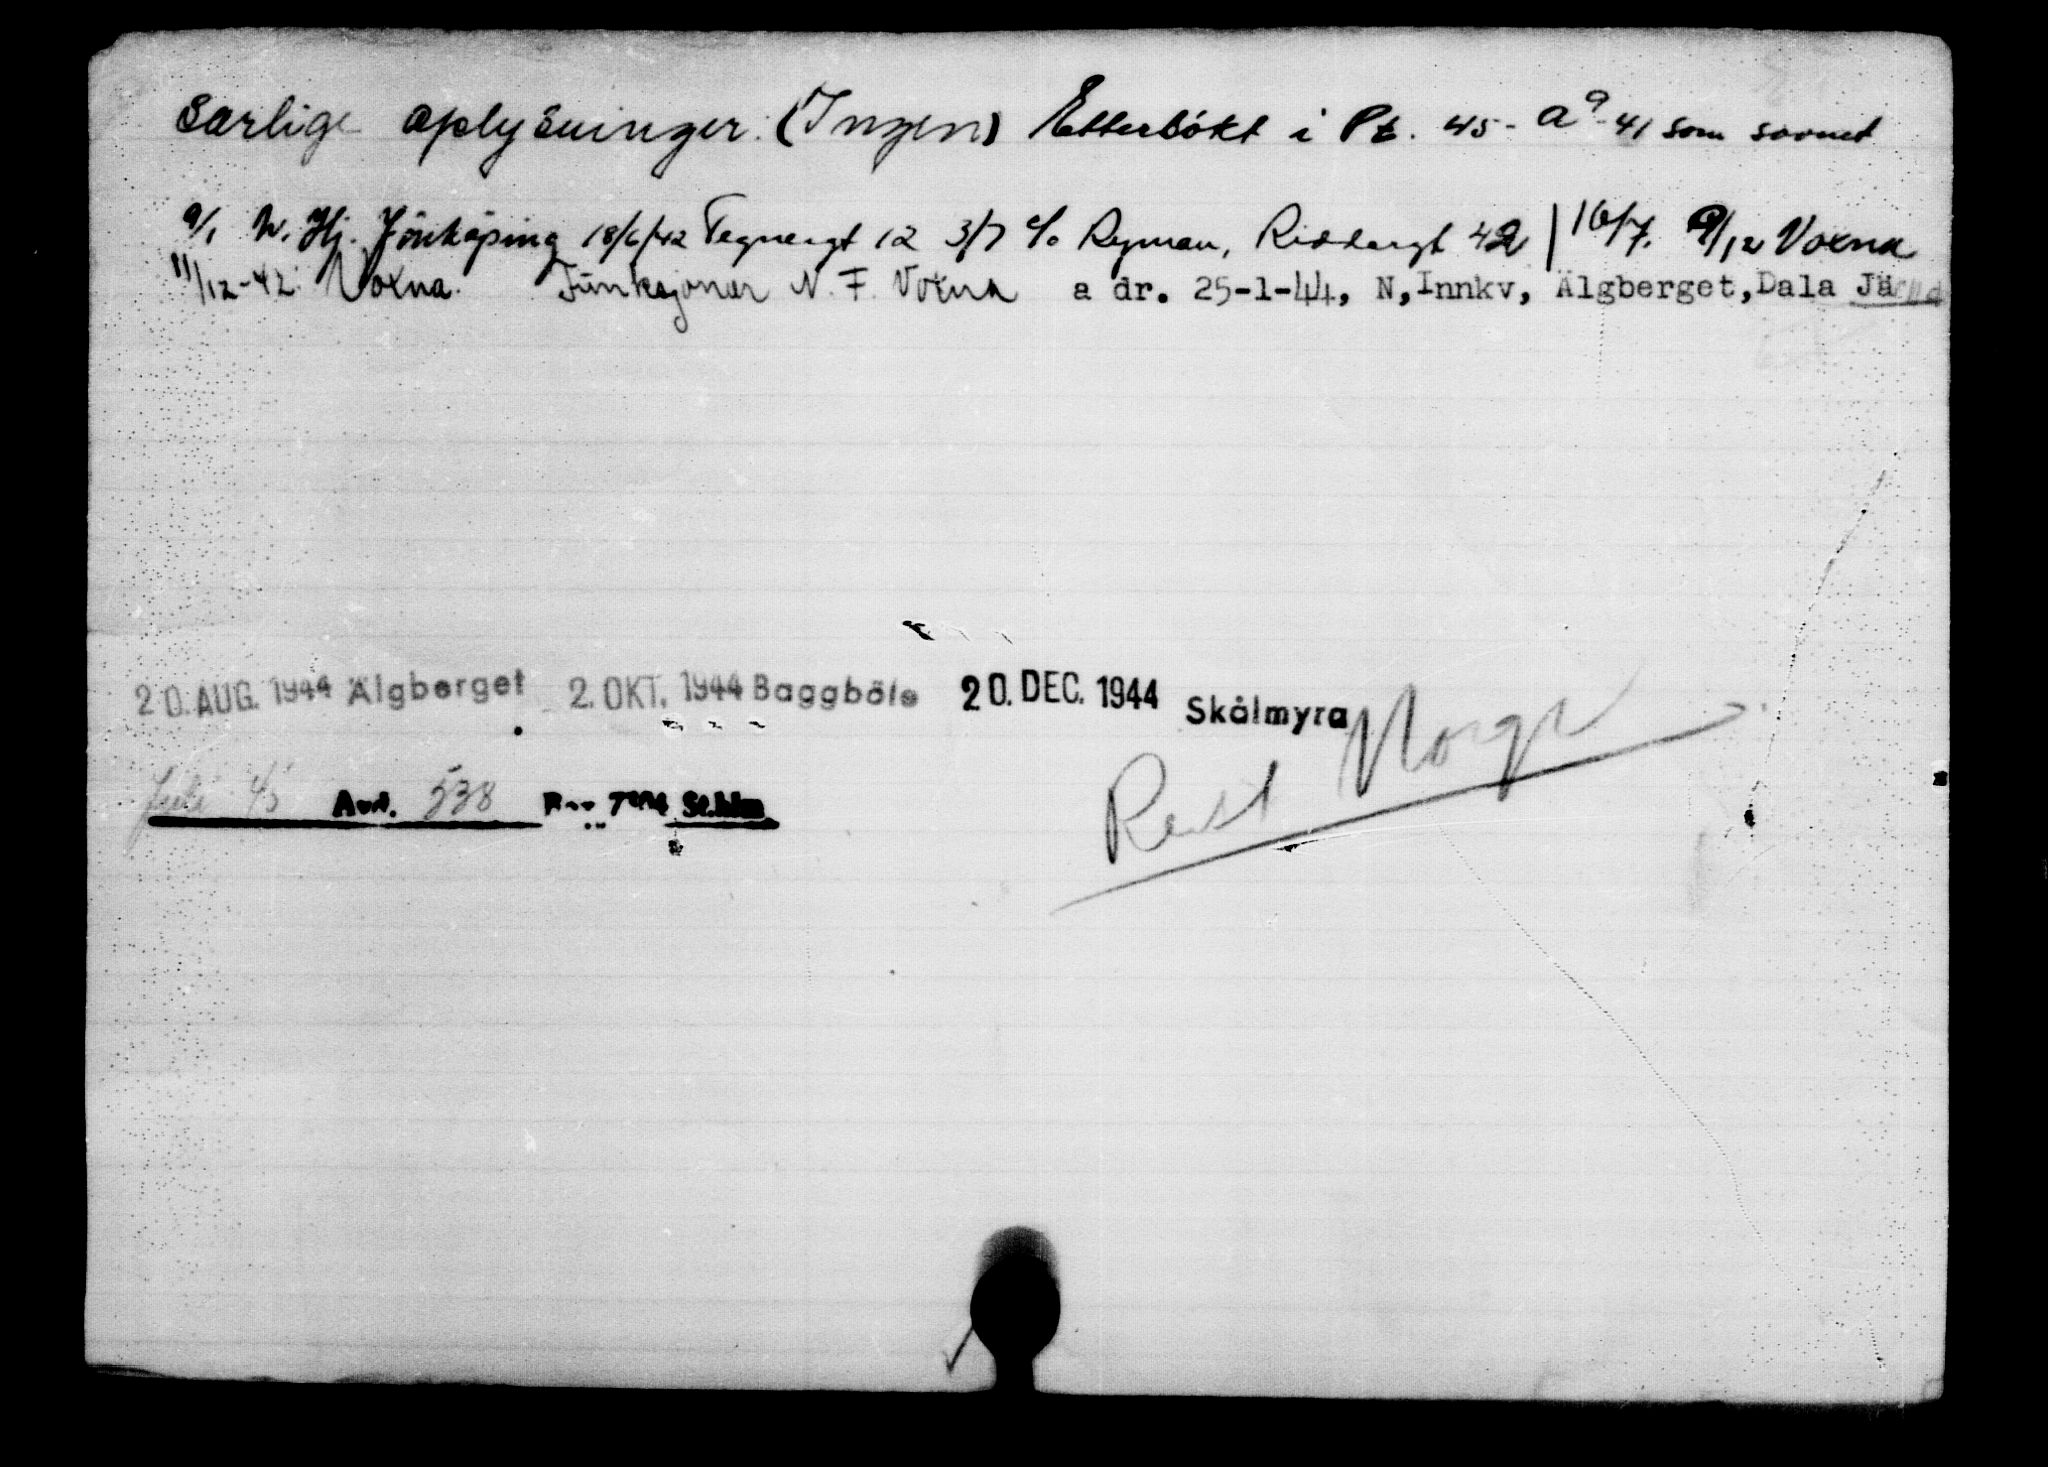 Særlige oplysninger: (Ingen) Etterlökt i Pt. 45-a9-41 som savnet
9/1 W. Hj. Jönköping 18/6/42 Tegnergt 12 3/7 c/o Ryman, Riddargt 42 | 16/7. 9/12 Voxna
11/12-42. Voxna. Funksjonær N. F. Voxna a dr. 25-1-44, N,Innkv, Älgberget,Dala Järna
20. AUG. 1944 Älgberget 2. OKT. 1944 Baggböle 20. DEC. 1944 Skålmyra
Juli 45 Avd. 538 Box 7404 St.hlm
Reist Norge